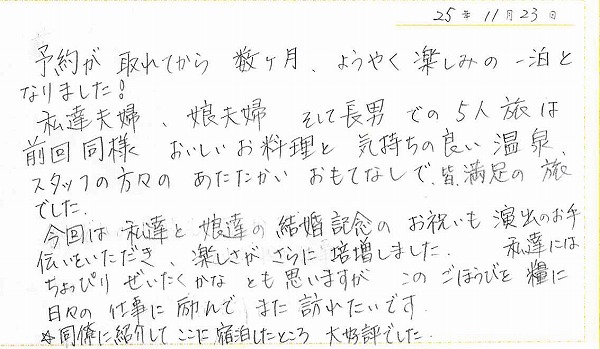 25年 11月 23日
予約が 取れてから 数ヶ月、ようやく 楽しみの 一泊と
なりました!
私達夫婦、娘夫婦 そして長男 での 5人 旅は
前回同様 おいしいお料理と 気持ちの良い 温泉、
スタッフの方々の あたたかい おもてなしで、皆満足の 旅
でした。
今回は 私達と 娘達の 結婚記念の お祝いも 演出のお手
伝いをいただき、楽しさが さらに 倍増しました。 私達には
ちょっぴり ぜいたくかな とも思いますが このごほうびを 糧に
日々の 仕事に 励んで また 訪れたいです。
☆同僚に紹介して ここに 宿泊したところ 大好評でした。